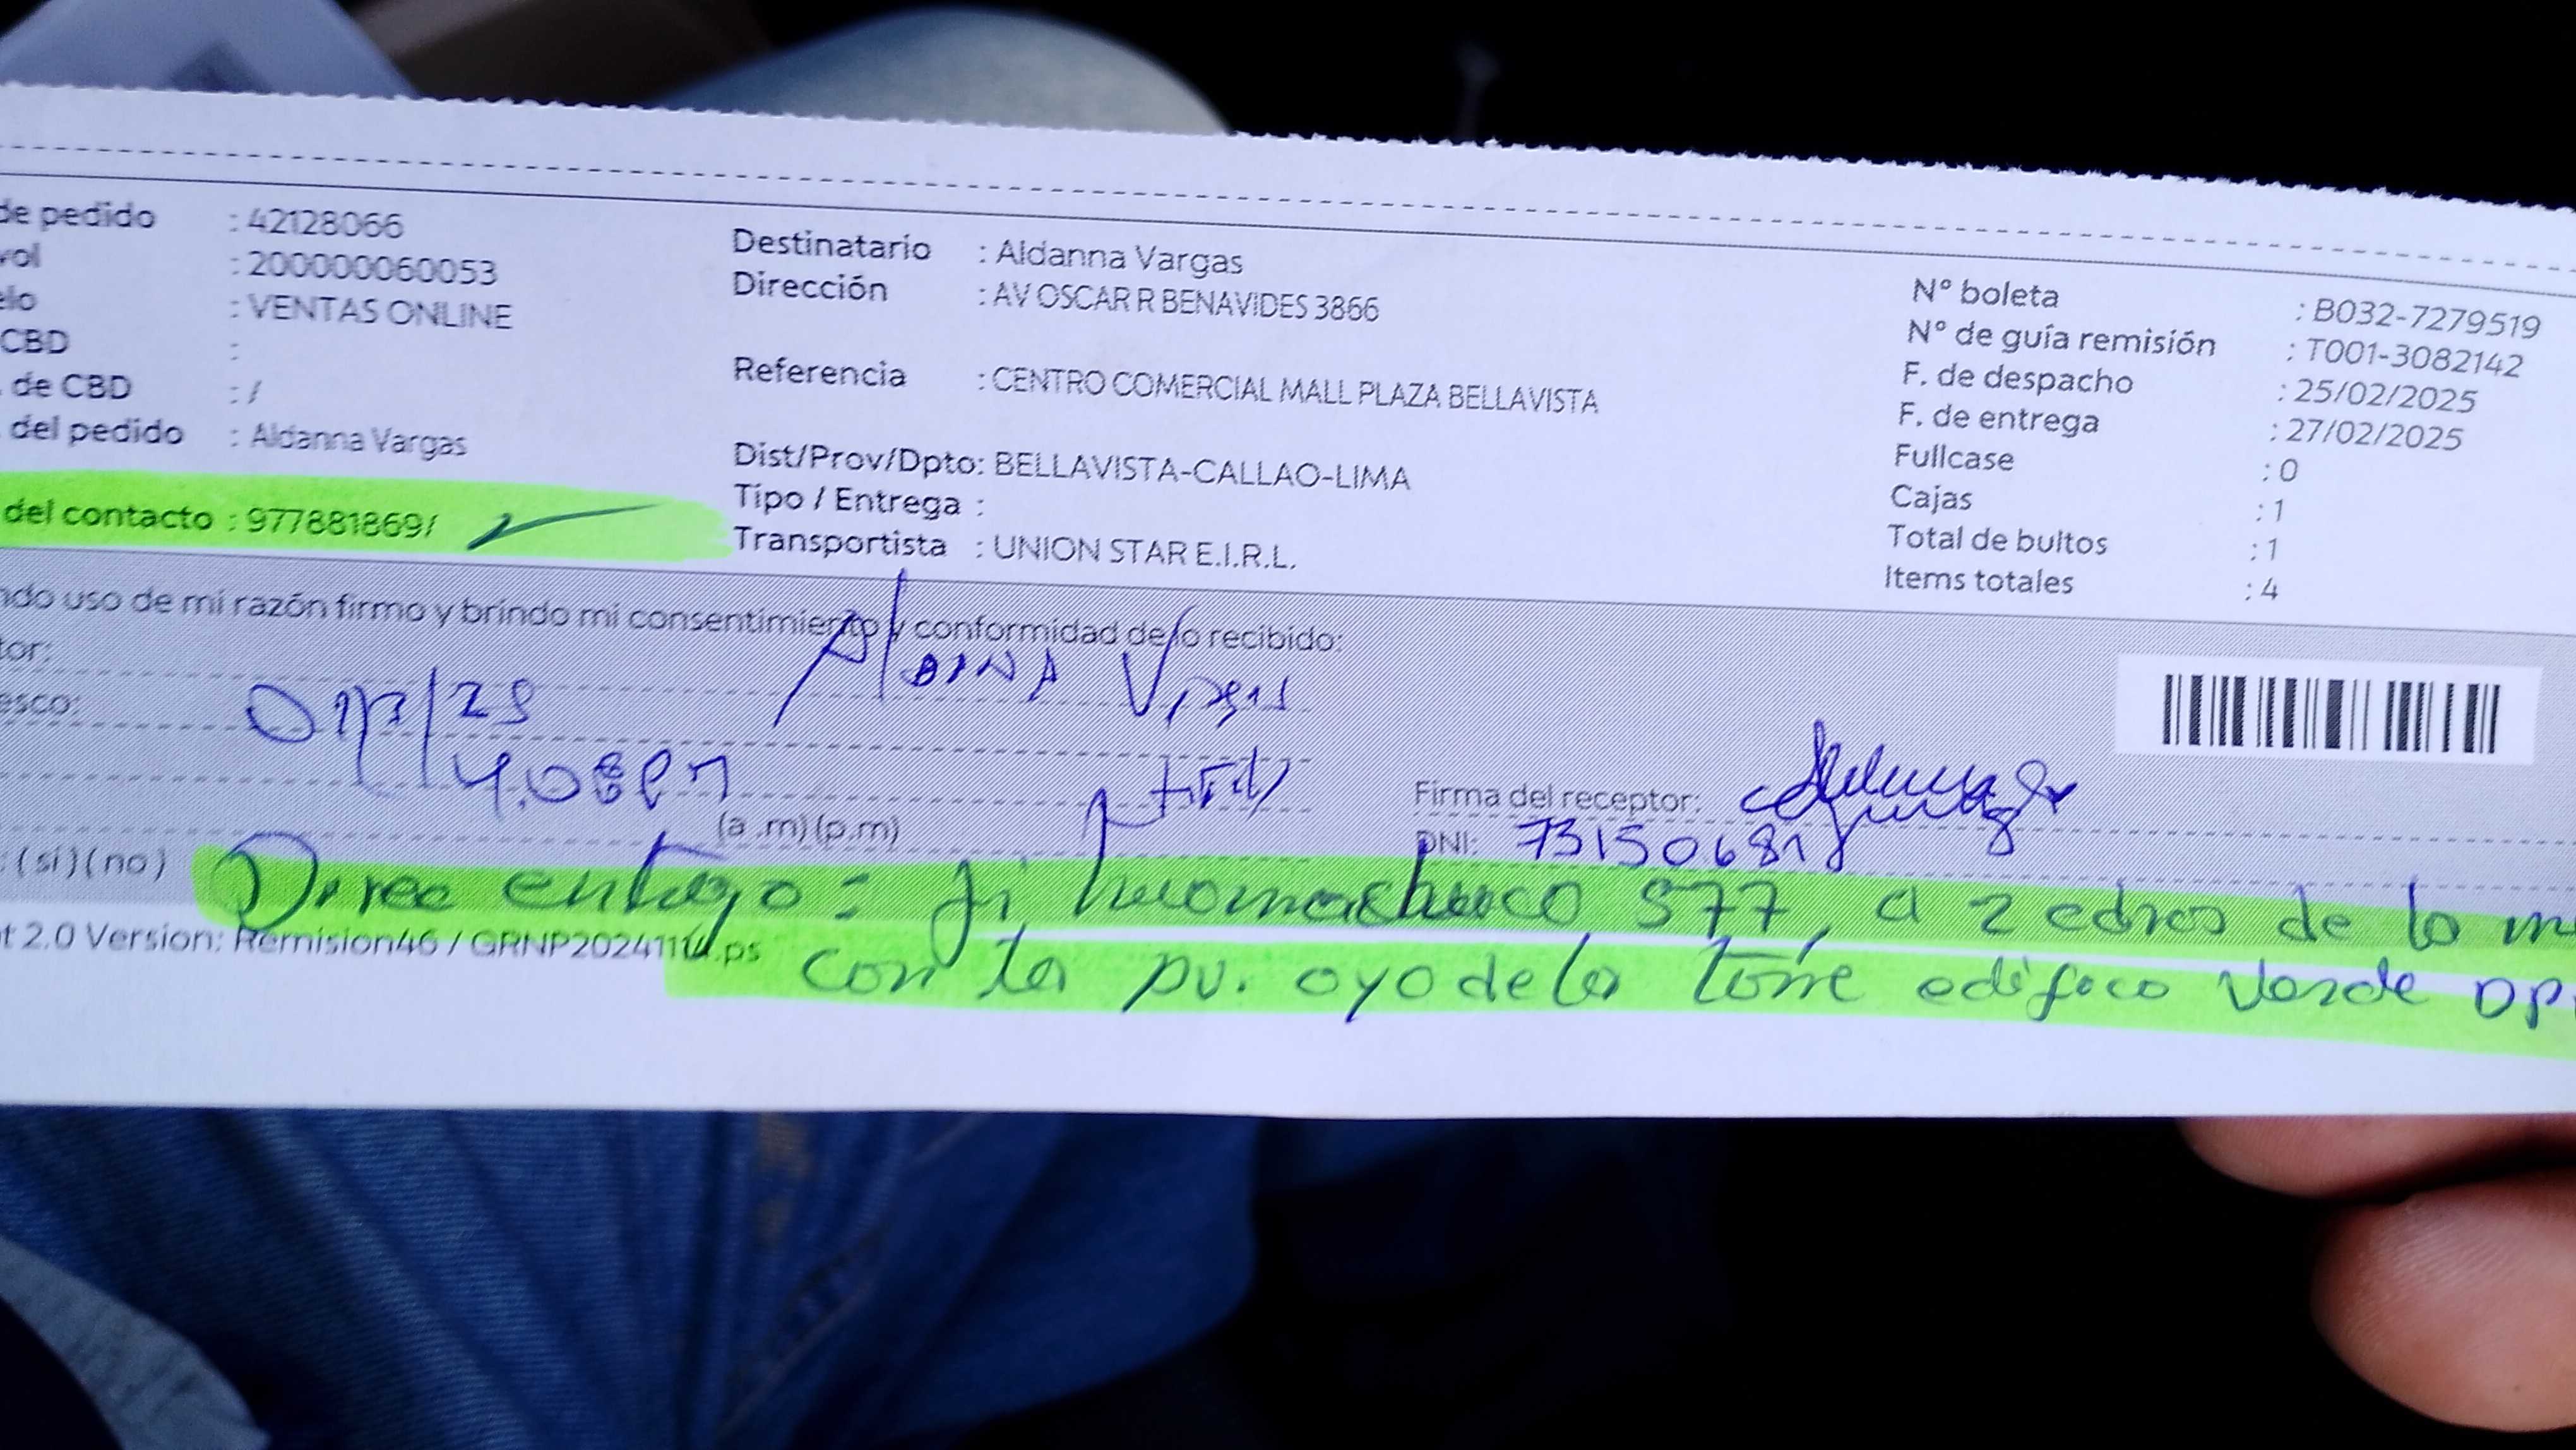 de pedido : 42128066
vol : 200000060053
elo : VENTAS ONLINE
CBD :
. de CBD : /
. del pedido : Aldanna Vargas
del contacto : 977881869/
Destinatario : Aldanna Vargas
Dirección : AV OSCAR R BENAVIDES 3866
Referencia : CENTRO COMERCIAL MALL PLAZA BELLAVISTA
Dist/Prov/Dpto: BELLAVISTA-CALLAO-LIMA
Tipo / Entrega :
Transportista : UNION STAR E.I.R.L.
Nº boleta : B032-7279519
Nº de guía remisión : T001-3082142
F. de despacho : 25/02/2025
F. de entrega : 27/02/2025
Fullcase : 0
Cajas : 1
Total de bultos : 1
Items totales : 4
ndo uso de mi razón firmo y brindo mi consentimiento y conformidad de lo recibido:
tor:
esco:
(a .m)(p.m)
Firma del receptor:
DNI: 73150681
: (si)(no)
Direc entrega: Ji Huamachuco 577, a 2 cdras de la
t 2.0 Version: Remision46 / GRNP20241114.ps
con la torre verde